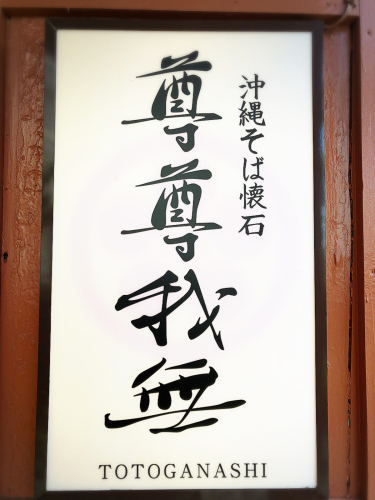 沖縄そば懐石
尊尊我無
TOTOGANASHI